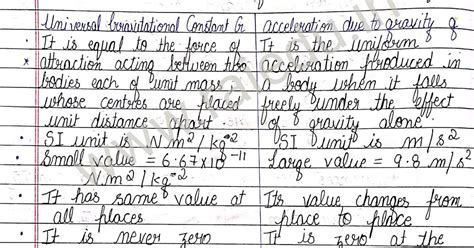 Universal Gravitational Constant G
It is equal to the force of
attraction acting between two
bodies each of unit mass
whose centres are placed
unit distance apart.
SI unit is Nm²/kg²
Small value = 6.67x10⁻¹¹
N.m²/kg²
It has same value at
all places
It is never zero
acceleration due to gravity g
It is the uniform
acceleration produced in
a body when it falls
freely under the effect
of gravity alone.
SI unit is m/s²
Large value = 9.8 m/s²
Its value changes from
place to place
It is zero at the